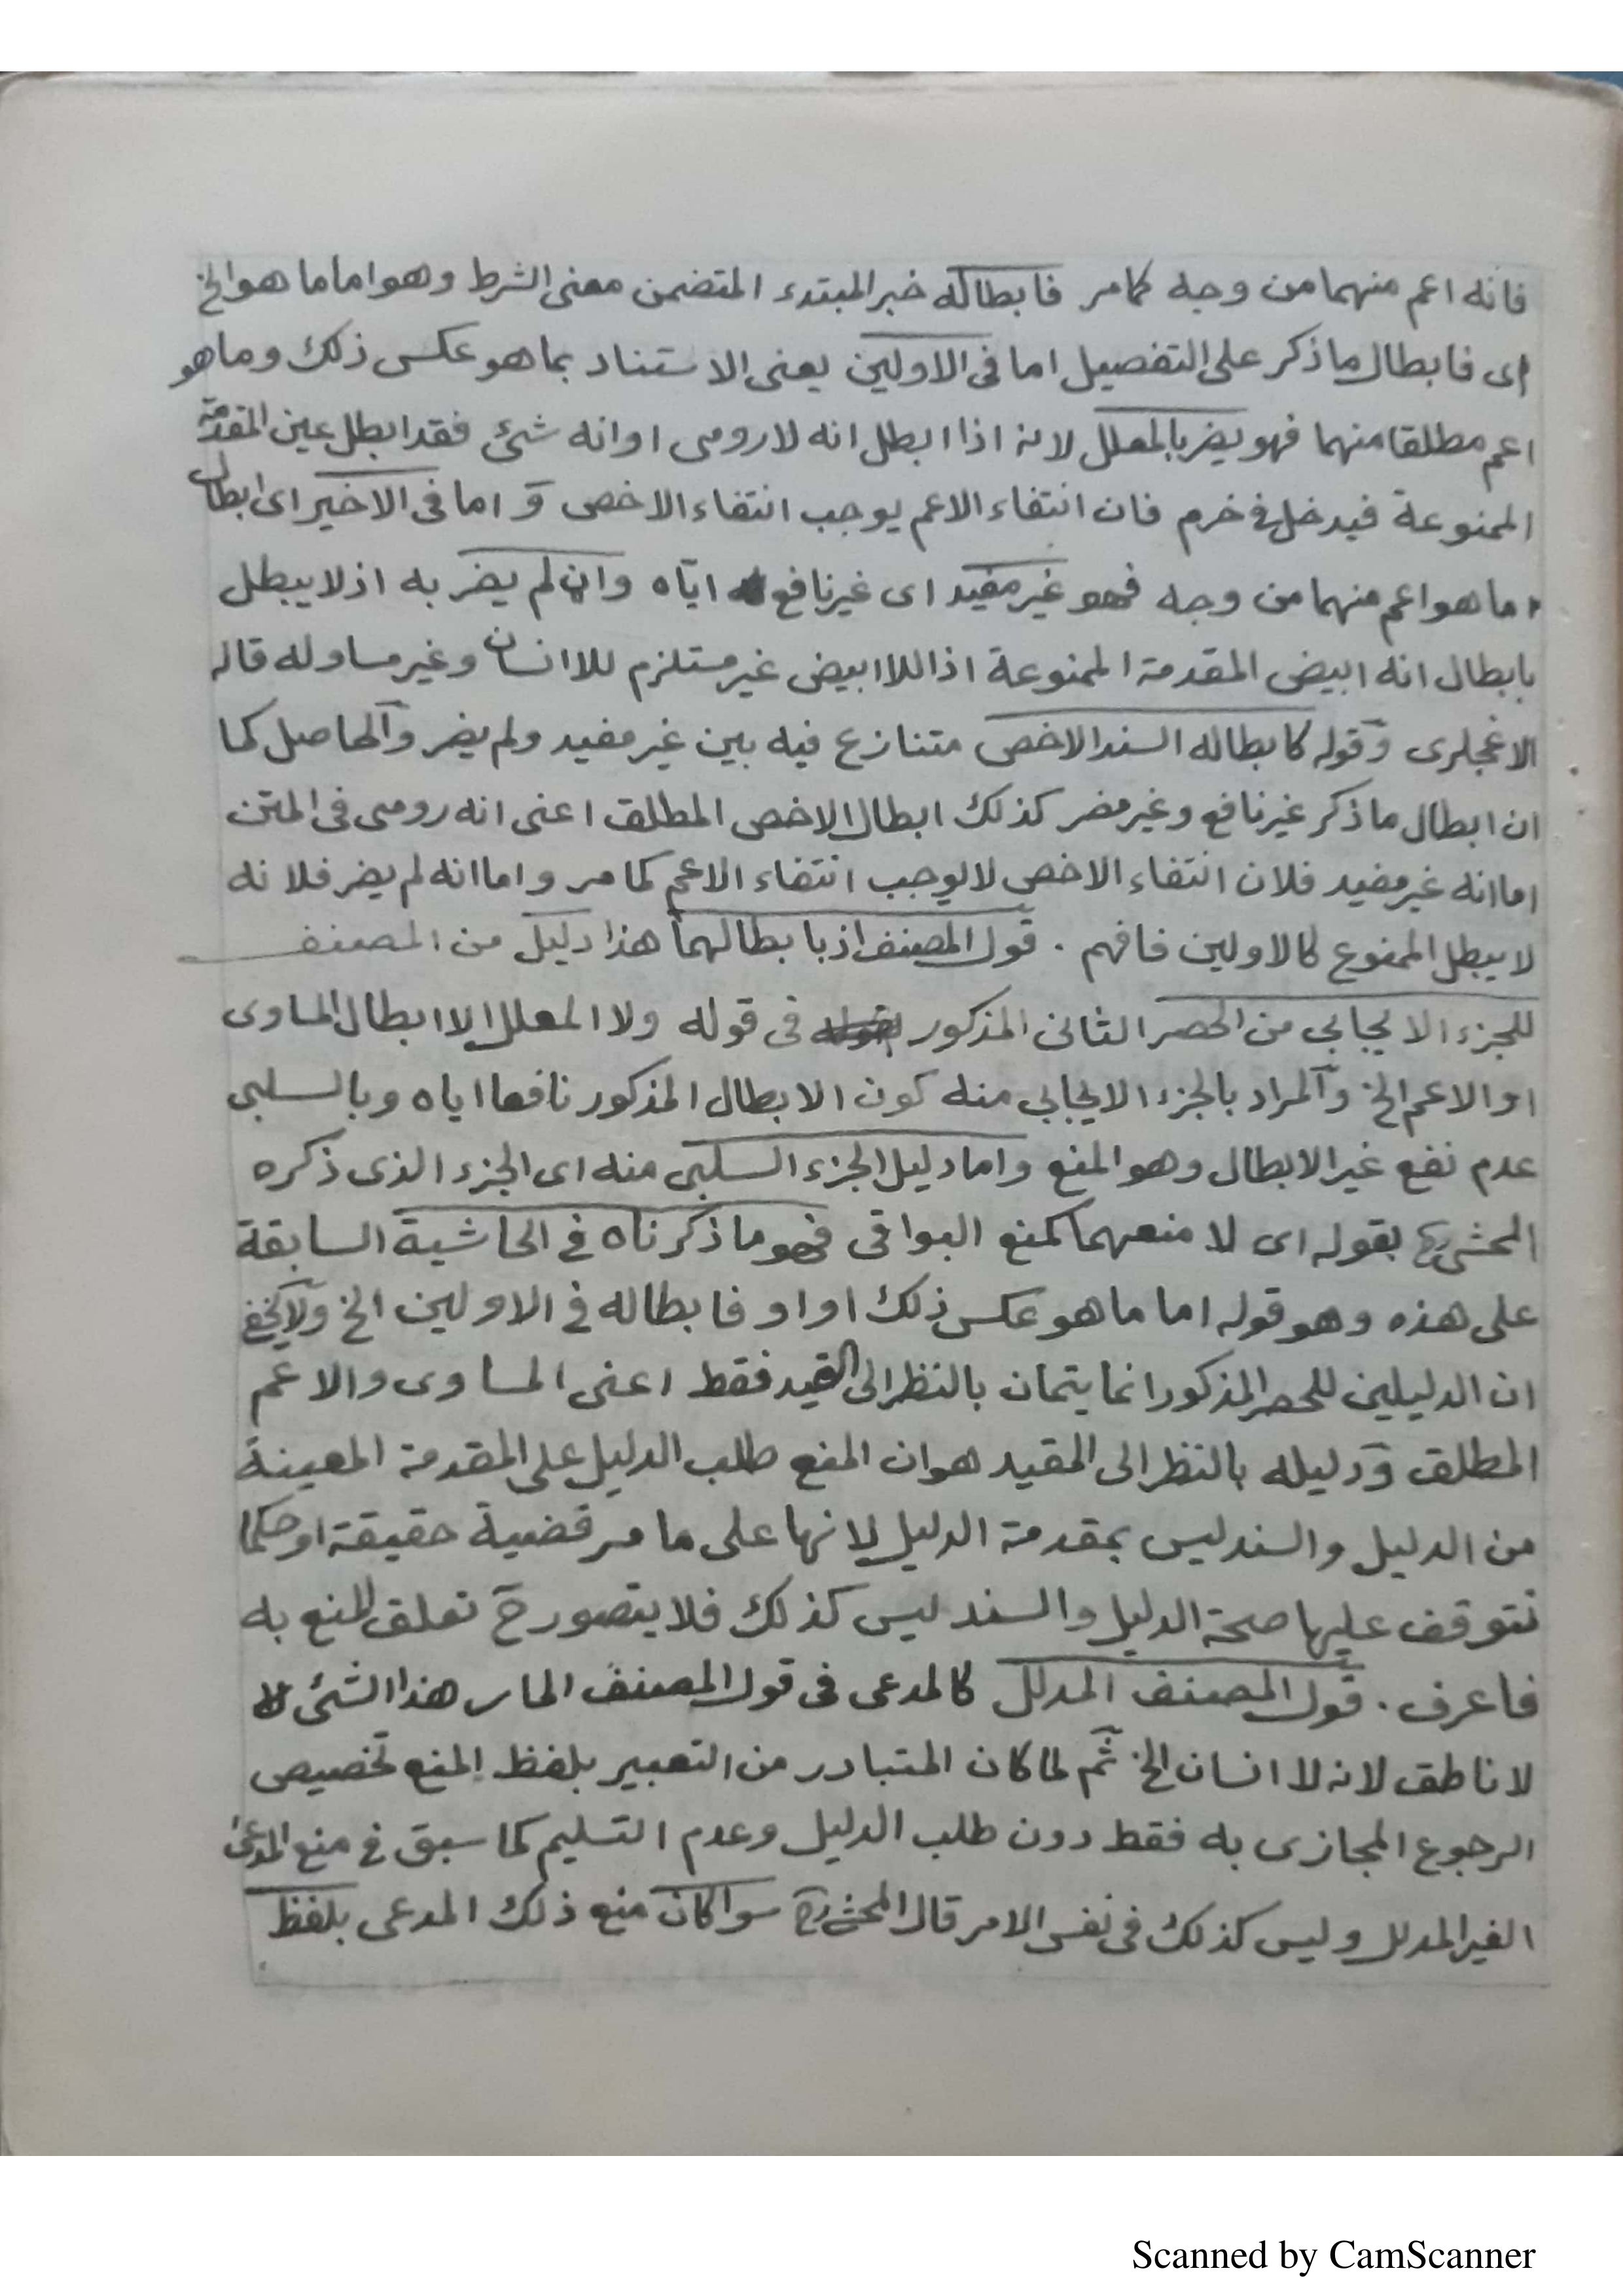 فانه اعم منهما من وجه كمامر فابطاله خبر المبتدء المتضمن معنى الشرط وهو اما ما هو الخ
اى فابطال ما ذكر على التفصيل اما فى الاولين يعنى الاستناد بما هو عكس ذلك وما هو
اعم مطلقا منهما فهو يضر بالمعلل لانه اذا ابطل انه لارومى اوانه شئ فقد ابطل عين المقدمة
الممنوعة فيدخل فى خرم فان انتفاء الاعم يوجب انتفاء الاخص و اما فى الاخير اى ابطال
ما هو اعم منهما من وجه فهو غير مفيد اى غير نافع اياه وان لم يضر به اذ لا يبطل
بابطال انه ابيض المقدمة الممنوعة اذ اللاابيض غير مستلزم للاانسان وغير مساو له قاله
الاغجلرى وقوله كابطاله السند الاخص متنازع فيه بين غير مفيد ولم يضر والحاصل كما
ان ابطال ما ذكر غير نافع وغير مضر كذلك ابطال الاخص المطلق اعنى انه رومى فى المتن
اما انه غير مفيد فلان انتفاء الاخص لا يوجب انتفاء الاعم كما مر واما انه لم يضر فلانه
لا يبطل الممنوع كالاولين فافهم . قول المصنف اذ بابطالهما هذا دليل من المصنف
للجزء الايجابي من الحصر الثانى المذكور فى قوله ولا المعلل الا ابطال المساوى
او الاعم الخ والمراد بالجزء الايجابي منه كون الابطال المذكور نافعا اياه وبالسلبى
عدم نفع غير الابطال وهو المنع واما دليل الجزء السلبى منه اى الجزء الذى ذكره
المحشى رح بقوله اى لا منعهما كمنع البواقى فهو ما ذكرناه فى الحاشية السابقة
على هذه وهو قوله اما ما هو عكس ذلك او او فابطاله فى الاولين الخ ولا يخفى
ان الدليلين للحصر المذكور انما يتمان بالنظر الى القيد فقط اعنى المساوى والاعم
المطلق ودليله بالنظر الى المقيد هو ان المنع طلب الدليل على المقدمة المعينة
من الدليل والسند ليس بمقدمة الدليل لانها على ما مر قضية حقيقة او حكما
تتوقف عليها صحة الدليل والسند ليس كذلك فلا يتصور ح تعلق المنع به
فاعرف . قول المصنف المدلل كالمدعى فى قول المصنف المار هذا الشئ
لا ناطق لانه لا انسان الخ ثم لما كان المتبادر من التعبير بلفظ المنع تخصيص
الرجوع المجازى به فقط دون طلب الدليل وعدم التسليم كما سبق فى منع المدعى
الغير المدلل وليس كذلك فى نفس الامر قال المحشى رح سوا كان منع ذلك المدعى بلفظ
Scanned by CamScanner